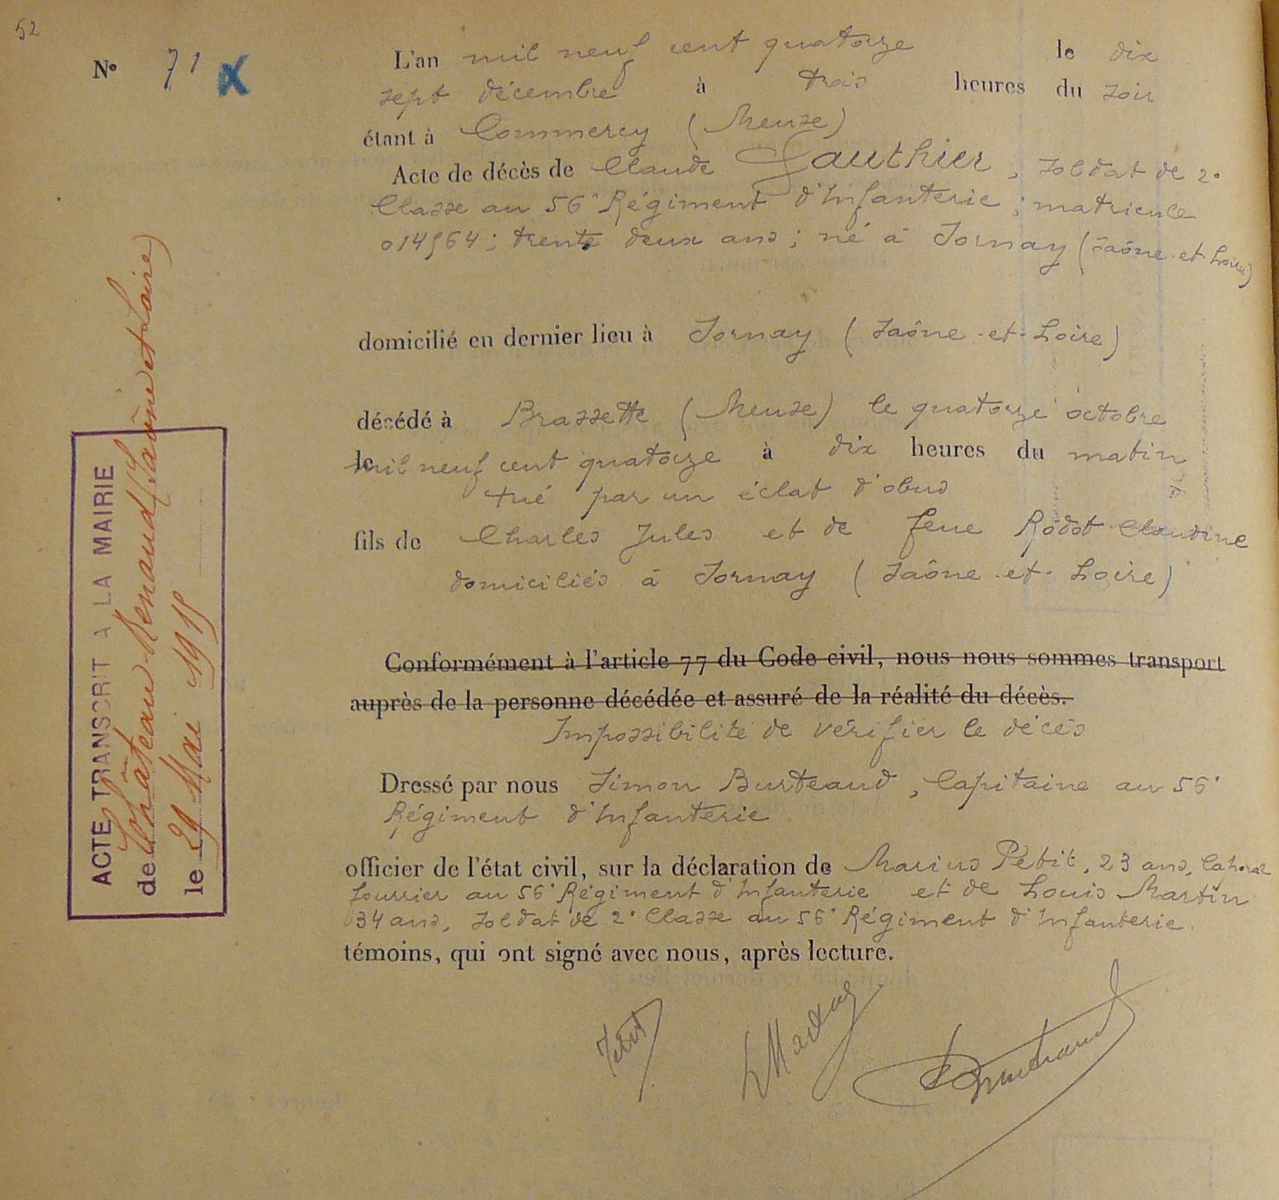 52
N° 71 X
L'an mil neuf cent quatorze le dix
sept décembre à trois heures du soir
étant à Commercy (Meuse)
Acte de décès de Claude Gauthier, soldat de 2e
Classe au 56e Régiment d'Infanterie; matricule
014564; trente deux ans; né à Sornay (Saône-et-Loire)
domicilié en dernier lieu à Sornay (Saône-et-Loire)
décédé à Brassette (Meuse) le quatorze octobre
le mil neuf cent quatorze à dix heures du matin
tué par un éclat d'obus
fils de Charles Jules et de feue Rodot Claudine
domiciliés à Sornay (Saône-et-Loire)
Conformément à l'article 77 du Code civil, nous nous sommes transport
auprès de la personne décédée et assuré de la réalité du décès.
Impossibilité de vérifier le décès
Dressé par nous Simon Burteaud, Capitaine au 56e
Régiment d'Infanterie
officier de l'état civil, sur la déclaration de Marius Petit, 23 ans, Caporal
fourrier au 56e Régiment d'Infanterie et de Louis Martin
34 ans, soldat de 2e Classe au 56e Régiment d'Infanterie.
témoins, qui ont signé avec nous, après lecture.
Petit
L Martin
Burteaud
ACTE TRANSCRIT A LA MAIRIE
de Château-Renaud (Saône et Loire)
le 29 Mai 1915